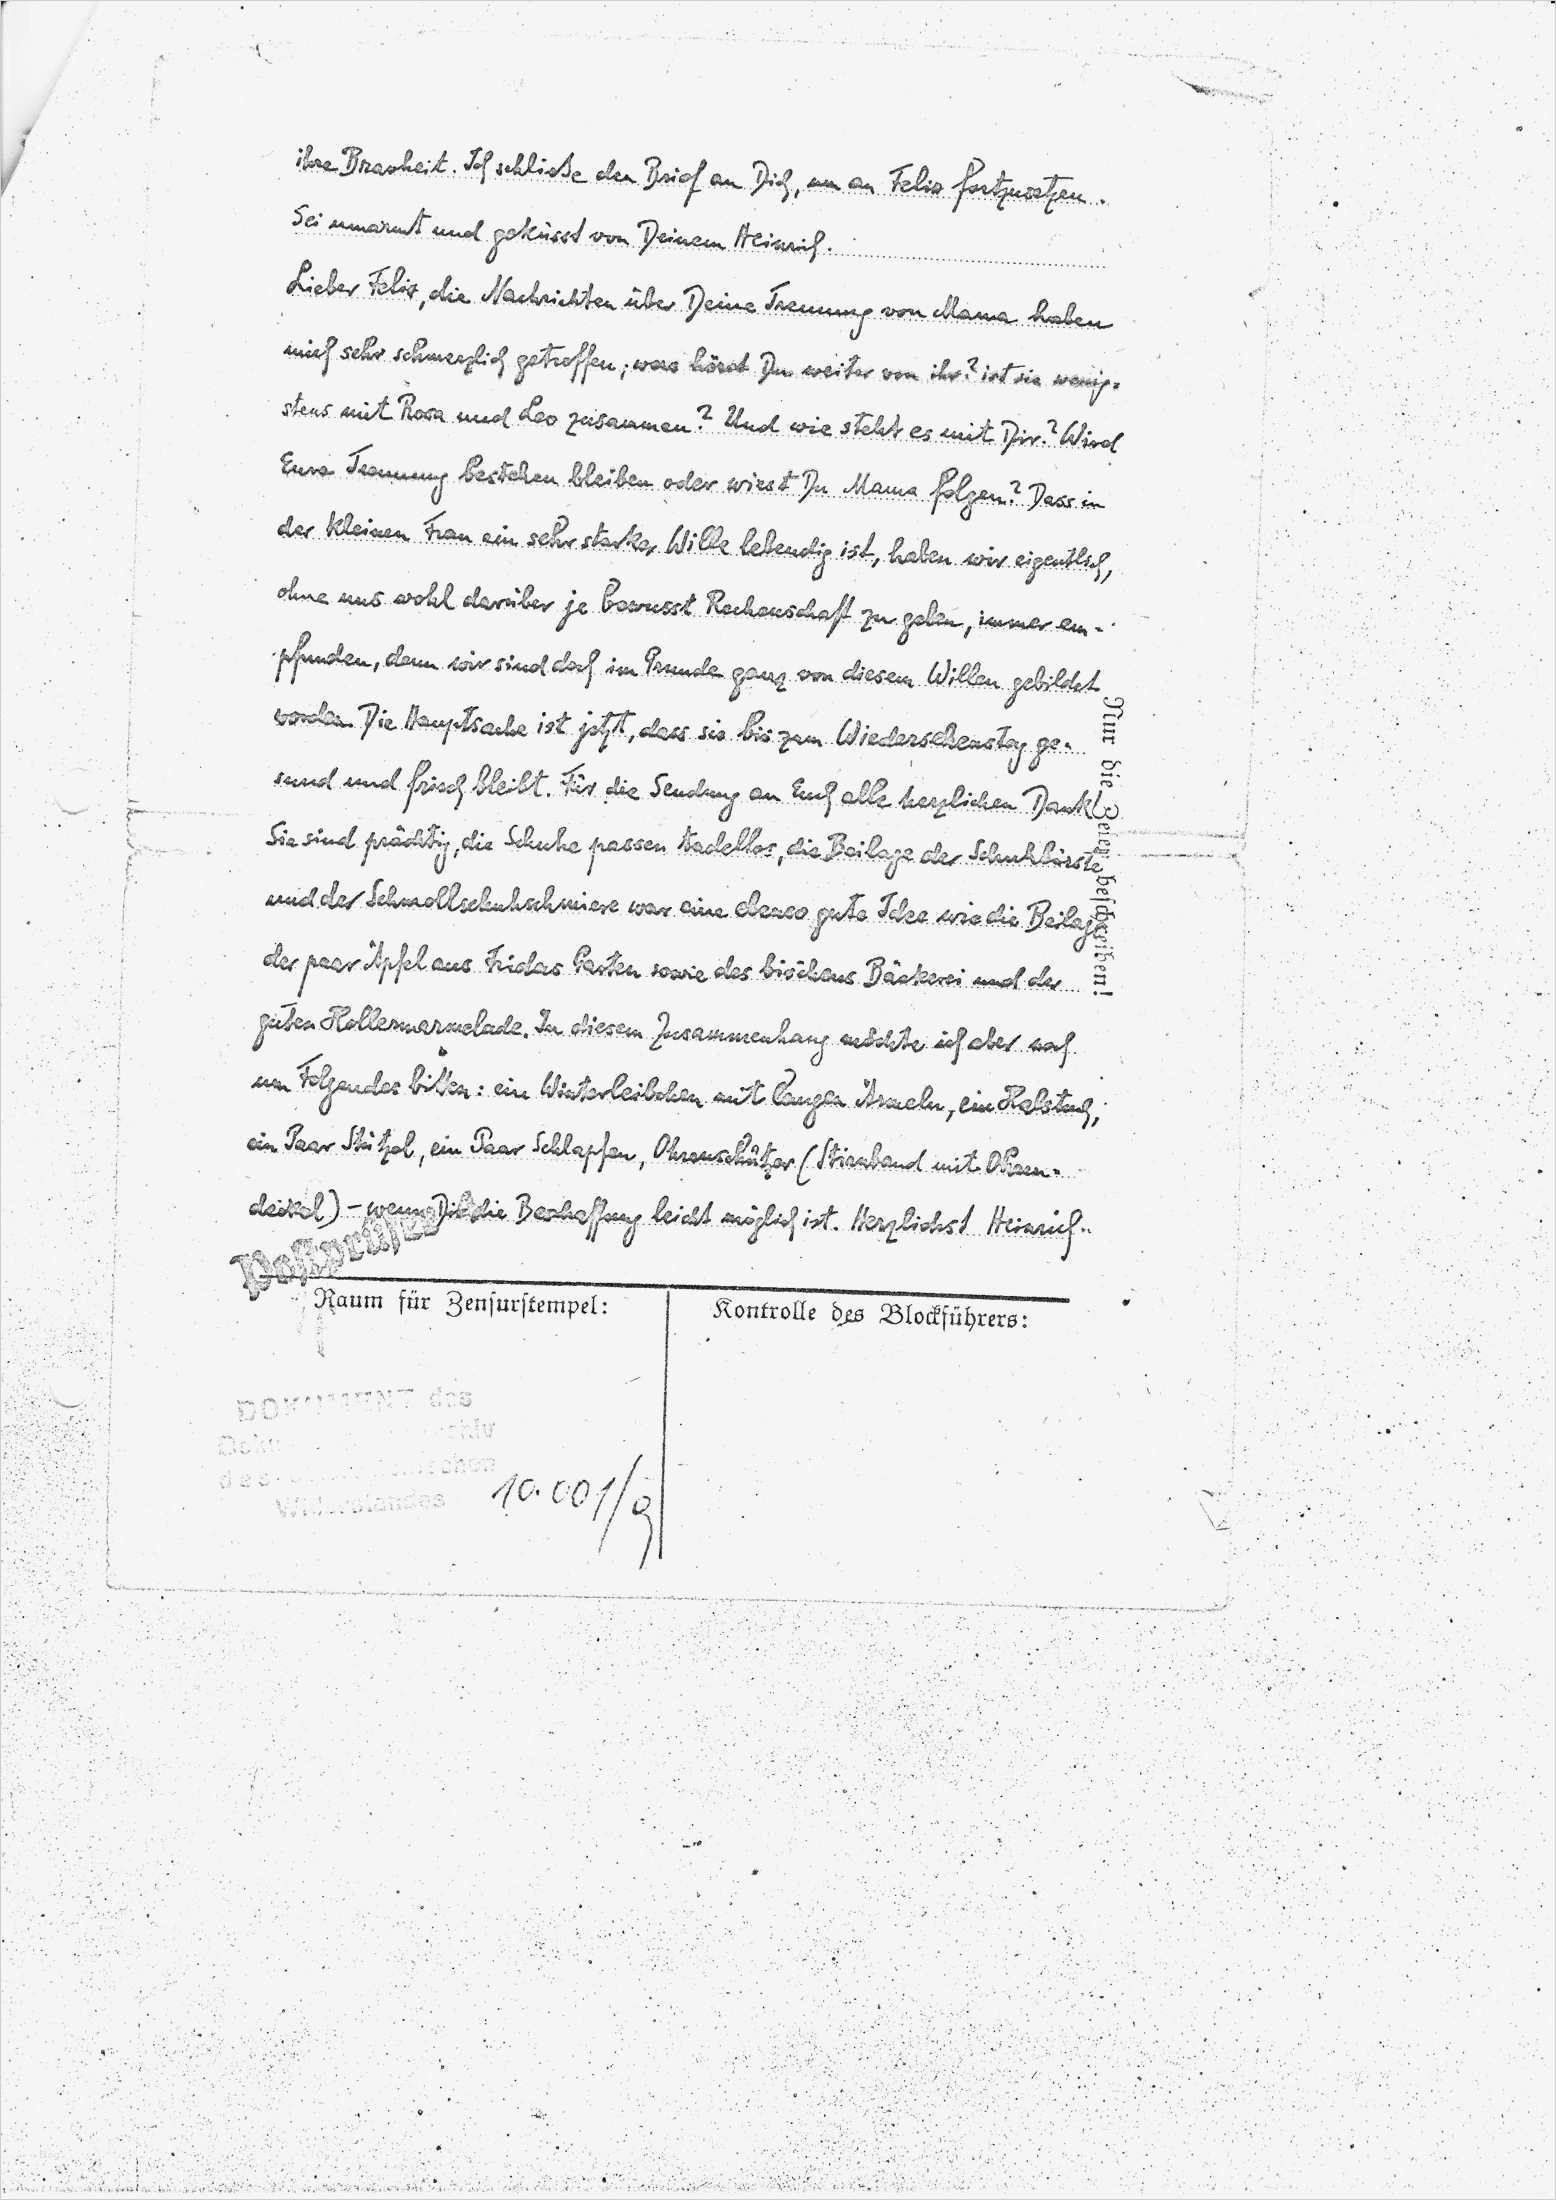 ihre Bravheit. Ich schließe den Brief an Dich, um an Felix fortzusetzen.
Sei umarmt und geküsst von Deinem Heinrich.
Lieber Felix, die Nachrichten über Deine Trennung von Mama haben
mich sehr schmerzlich getroffen; was hörst Du weiter von ihr? ist sie wenig-
stens mit Rosa und Leo zusammen? Und wie steht es mit Dir? Wird
Eure Trennung bestehen bleiben oder wirst Du Mama folgen? Dass in
der kleinen Frau ein sehr starker Wille lebendig ist, haben wir eigentlich,
ohne uns wohl darüber je bewusst Rechenschaft zu geben, immer em-
pfunden, denn wir sind doch im Grunde ganz von diesem Willen gebildet
worden. Die Hauptsache ist jetzt, dass sie bis zum Wiedersehenstag ge-
sund und frisch bleibt. Für die Sendung an Euch alle herzlichen Dank!
Sie sind prächtig, die Schuhe passen tadellos, die Beilage der Schuhbürste
und der Schmollschuhschmiere war eine ebenso gute Idee wie die Beilage
der paar Äpfel aus Fridas Garten sowie des bisschens Bäckerei und der
guten Hollermarmelade. In diesem Zusammenhang möchte ich aber noch
um Folgendes bitten: ein Winterleibchen mit langen Ärmeln, ein Halstuch,
ein Paar Stützel, ein Paar Schlapfen, Ohrenschützer (Stirnband mit Ohren-
deckel) – wenn Dir die Beschaffung leicht möglich ist. Herzlichst Heinrich.
Nur die Zeilen beschreiben!
Postprüfer
Raum für Zensurstempel:
Kontrolle des Blockführers:
DOKUMENT des
Widerstandes
10.001/9